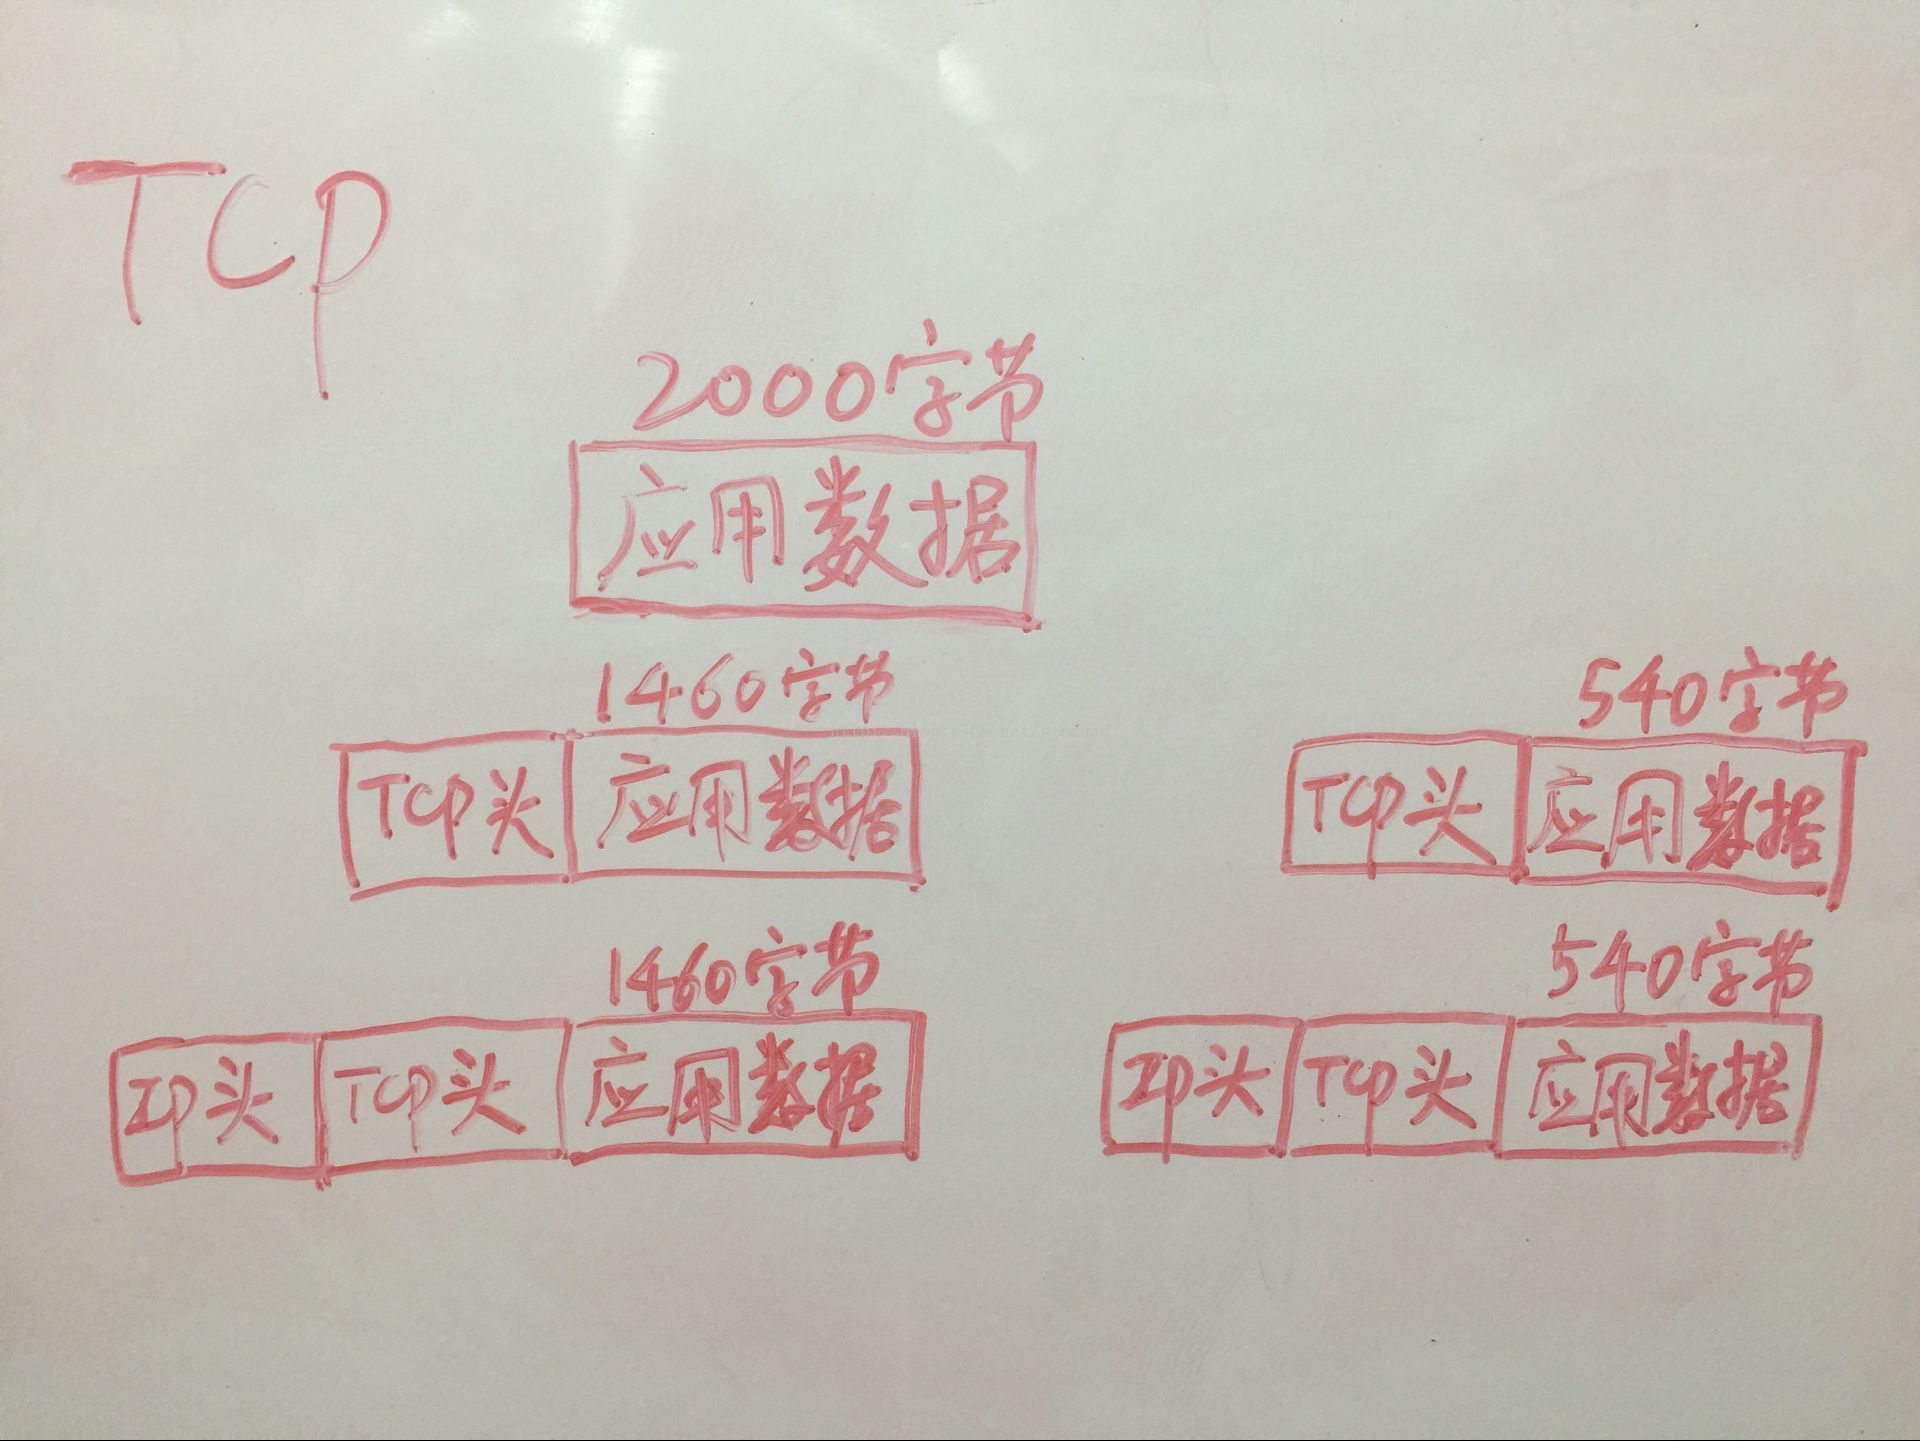 TCP
2000字节
应用数据
1460字节
540字节
TCP头 应用数据
TCP头 应用数据
1460字节
540字节
IP头 TCP头 应用数据
IP头 TCP头 应用数据